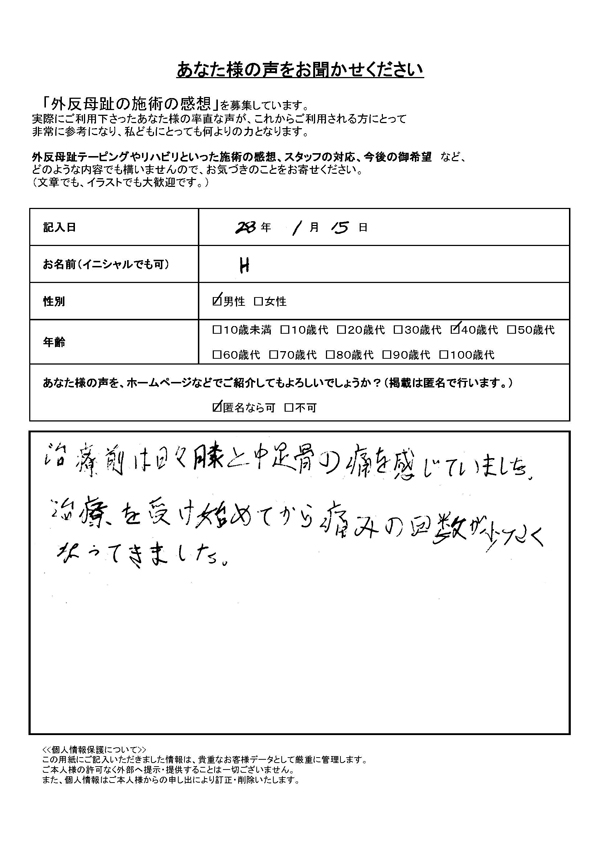 あなた様の声をお聞かせください
「外反母趾の施術の感想」を募集しています。
実際にご利用下さったあなた様の率直な声が、これからご利用される方にとって
非常に参考になり、私どもにとっても何よりの力となります。
外反母趾テーピングやリハビリといった施術の感想、スタッフの対応、今後の御希望 など、
どのような内容でも構いませんので、お気づきのことをお寄せください。
（文章でも、イラストでも大歓迎です。）
記入日 28 年 1 月 15 日
お名前（イニシャルでも可） H
性別 ☑男性 □女性
年齢 □10歳未満 □10歳代 □20歳代 □30歳代 ☑40歳代 □50歳代
□60歳代 □70歳代 □80歳代 □90歳代 □100歳代
あなた様の声を、ホームページなどでご紹介してもよろしいでしょうか？（掲載は匿名で行います。）
☑匿名なら可 □不可
治療前は日々膝と中足骨の痛を感じていました。
治療を受け始めてから痛みの回数が少なく
なってきました。
<<個人情報保護について>>
この用紙にご記入いただきました情報は、貴重なお客様データとして厳重に管理します。
ご本人様の許可なく外部へ提示・提供することは一切ございません。
また、個人情報はご本人様からの申し出により訂正・削除いたします。